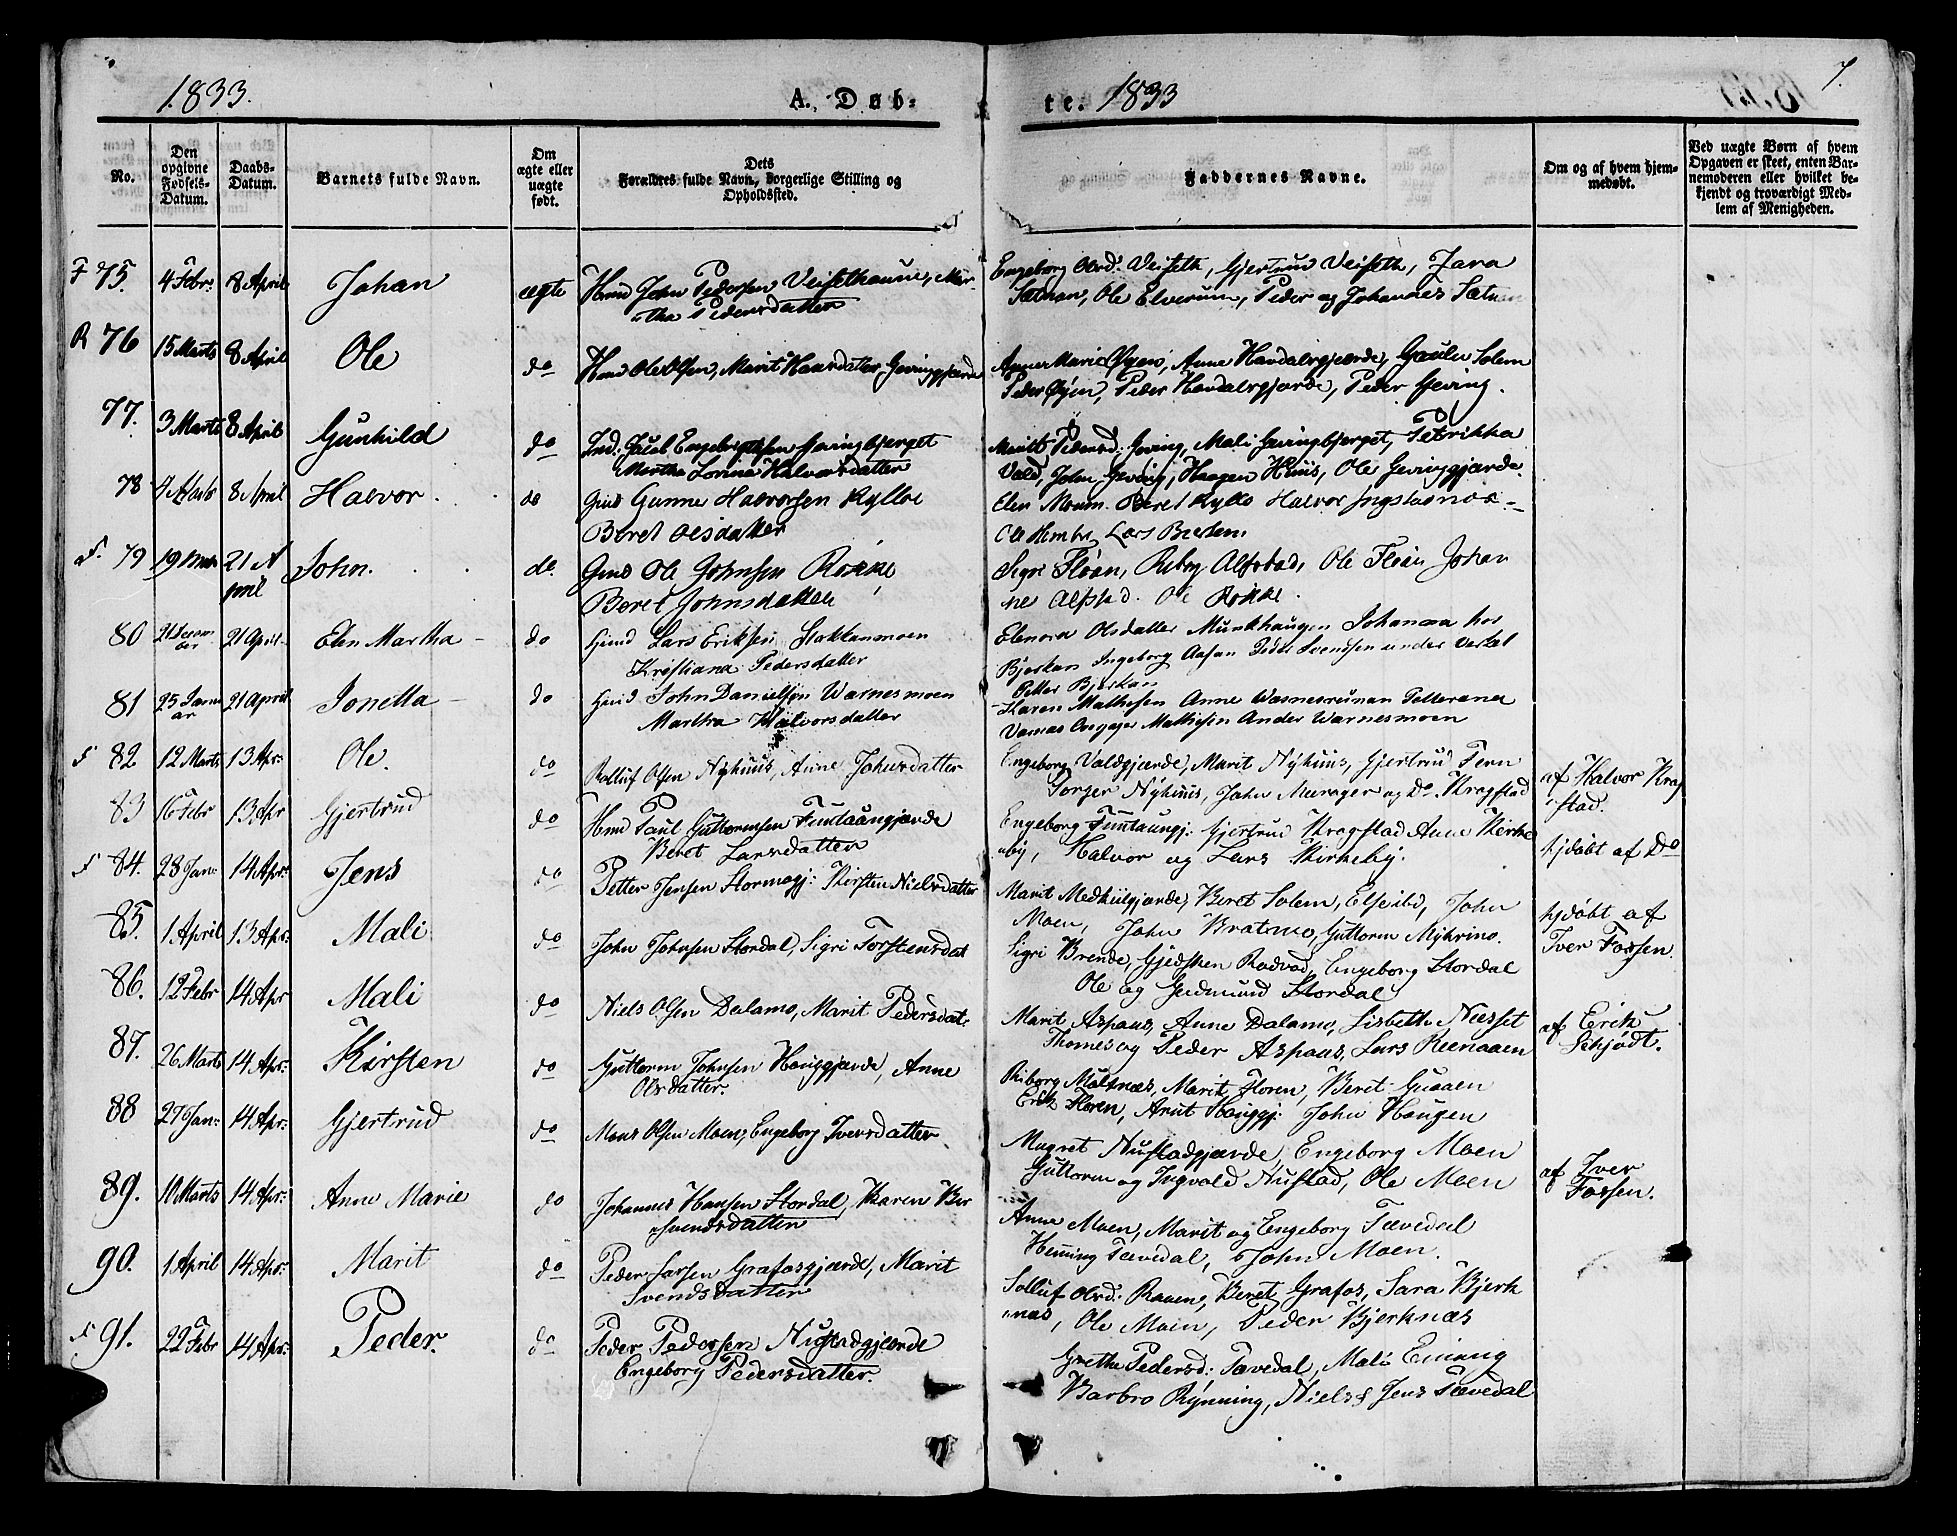 1833.
A. Døb-
te. 1833
7.
No.
Den opgivne Fødsels-Datum.
Daabs-Datum.
Barnets fulde Navn.
Om ægte eller uægte født.
Dets Forældres fulde Navn, borgerlige Stilling og Opholdssted.
Faddernes Navne.
Om og af hvem hjem-medøbt.
Ved uægte Børn af hvem Opgaven er skeet, enten Bar-nemoderen eller hvilket be-kjendt og troværdigt Med-lem af Menigheden.
F 75. 4 Febr: 8 April Johan ægte Hmd John Pedersen Veisethaune, Mar-
tha Pedersdatter
Engeborg Olsd: Veiseth, Gjertrud Veiseth, Zara
Sætnan, Ole Elverum, Peder og Johannes Sætnan
R 76 15 Marts 8 April Ole do Hmd Ole Olsen, Marit Hansdatter, Gevinggjærde
Anne Marie Øyen, Anne Havdalsgjærde, Solem
Peder Øyen, Peder Havdalsgjærde, Peder Geving.
77. 3 Marts 8 April Gunhild do Ind: Jacob Engebrigtsen Gevingbjerget
Martha Lorina Halvorsdatter
Maritt Pedersd: Geving, Mali Gevingbjerget, Petrikka
Vald, John Geving, Haagen Huus, Ole Gevinggjærde
78 4 Marts 8 April Halvor do Gmd Gunne Halvorsen Kylloe
Beret Olsdatter
Elen Moum. Beret Kyllo Halvor Ingstadnæs
Ole Hembre Lars
F. 79 19 21 A
pril John. do. Gmd Ole Johnsen Røkke
Beret Johnsdatter
Sigri Floan, Alfstad, Ole Floan Johan
ne Alfstad. Ole Røkke.
80 21 Decem
ber 21 April Elen Martha do Gmd Lars Eriksen Stokkanmoen
Kristiana Pedersdatter
Elenora Olsdatter Munkhaugen Johanna hos
Bjørkan Ingeborg Aasan Peder Svendsen under Verket
Petter Bjørkan
81 25 Janu
ar 21 April Jonetta do Gmd John Danielsen Warnesmoen
Martha Halvorsdatter
Karen Mathisen Anne Petterana
Mathisen Ander Warnesmoen
F 82 12 Marts 13 Apr: Ole. do Rolluf Olsen Nyhuus, Anne Johnsdatter
Engeborg Valdgjærde, Marit Nyhuus, Gjertrud Fern
Torger Nyhuus, John Merager og Do. Kragstad
af Halvor Krag
stad.
83 16 Febr 13 Apr Gjertrud do Hmd Paul Guttormsen Funtaangjærde
Beret Larsdatter
Engeborg Funtaungj: Gjertrud Kragstad Anne Kirke
by, Halvor og Lars Kirkeby.
hjdøbt af Do
F 84. 28 Jan: 14 Apr: Jens do Petter Jensen Stormogj: Kirsten Nielsdatter
Marit Medhulgjærde, Beret Solem, Else ibd, John
Moen, John Bratmo, Guttorm Myhrmo.
85. 1 April 13 Apr: Mali do John Johnsen Stordal, Sigri Torstensdat
Sigri Brende, Gjedsken Rodvad, Engeborg Stordal
Ole og Gudmund Stordal
hjdøbt af
Iver Fossen.
86. 12 Febr 14 Apr Mali do Niels Olsen Dalamo, Marit Pedersdat.
Marit Aspaas, Anne Dalamo, Lisbeth Næsset
Thomes og Peder Aspaas, Lars Reenaaen
af Erik
Schjødt.
87. 26 Marts 14 Apr: Kirsten do Guttorm Johnsen Hauggjærde, Anne
Olsdatter.
Riborg Moltnæs, Marit Floren, Beret Gusaaen
Erik Floren, Arnt Hauggj: John Haugen
88 27 Jan: 14 Apr: Gjertrud do Mons Olsen Moen, Engeborg Iversdatter
Magret Nustadgjærde, Engeborg Moen
Guttorm og Ingvald Nustad, Ole Moen
af Iver
Fossen.
89. 10 Marts 14 Apr: Anne Marie do Johannes Hansen Stordal, Karen Ber
Svendsdatter
Anne Moen, Marit og Engeborg Tævedal
Henning Tævedal, John Moen.
90. 1 April 14 Apr: Marit do Peder Larsen Grafosgjærde, Marit
Svendsdatter
Solluf Olsd: Raaen, Beret Grafos, Sara Bjerk
næs, Ole Moen, Peder Bjerknæs
F 91. 22 Febr 14 Apr: Peder. do Peder Pedersen Nustadgjærde
Engeborg Pedersdatter.
Grethe Pedersd: Tævedal, Mali Einang
Barbro Rønning, Niels & Jens Tævedal